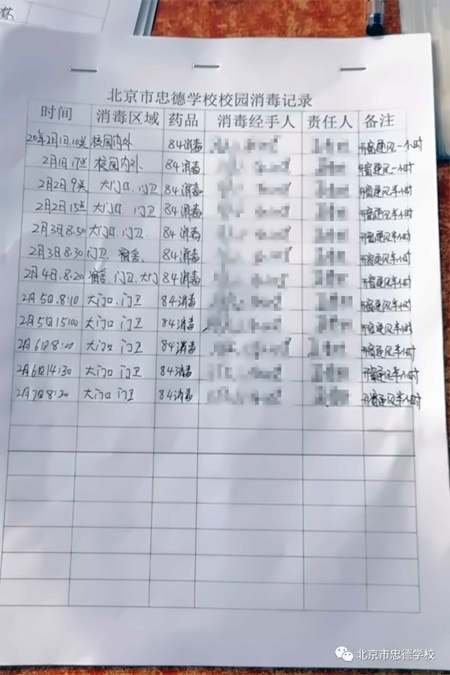 北京市忠德学校校园消毒记录
时间 消毒区域 药品 消毒经手人 责任人 备注
20年2月1日.10点 校园内外 84消毒 开窗通风一小时
2月1日17点 校园内外 84消毒 开窗通风一小时
2月2日9点 大门口、门卫 84消毒 开窗通风半小时
2月2日15点 大门口.门卫 84消毒 开窗通风半小时
2月3日8:50 大门口 门卫 84消毒 开窗通风半小时
2月3日8:30 门卫 宿舍、 84消毒 开窗通风半小时
2月4日.8:20 宿舍 门卫、大门 84消毒 开窗通风半小时
2月5日.8:10 大门口、门卫 84消毒 开窗通风半小时
2月5日15:00 大门口、门卫 84消毒 开窗通风半小时
2月6日8:00 大门口 门卫 84消毒 开窗通风半小时
2月6日14:30 大门口 门卫 84消毒 开窗通风半小时
2月7日8:20 大门口 门卫 84消毒 开窗通风半小时
北京市忠德学校